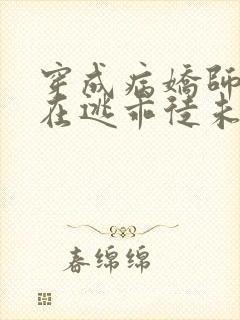 穿成病嬌師
在逃乖徒未
春绵绵